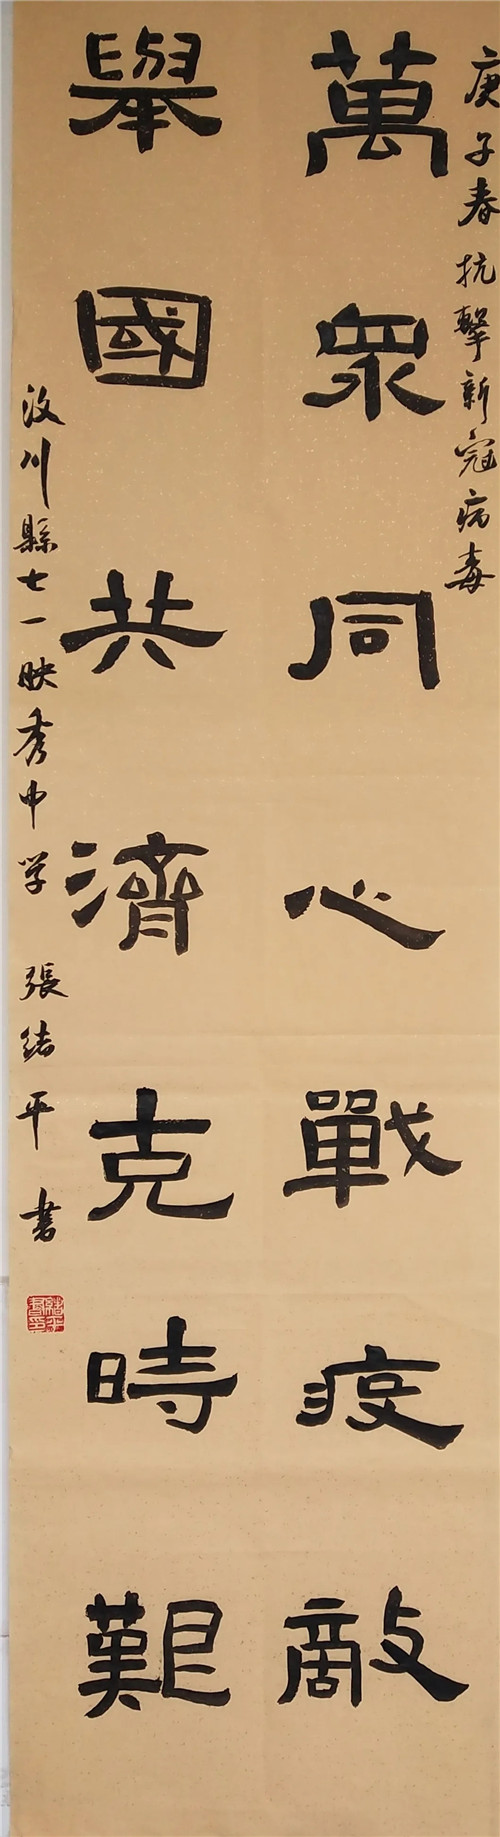 庚子春抗擊新冠病毒
萬衆同心戰疫敵
舉國共濟克時艱
汶川縣七一映秀中学 張緒平書